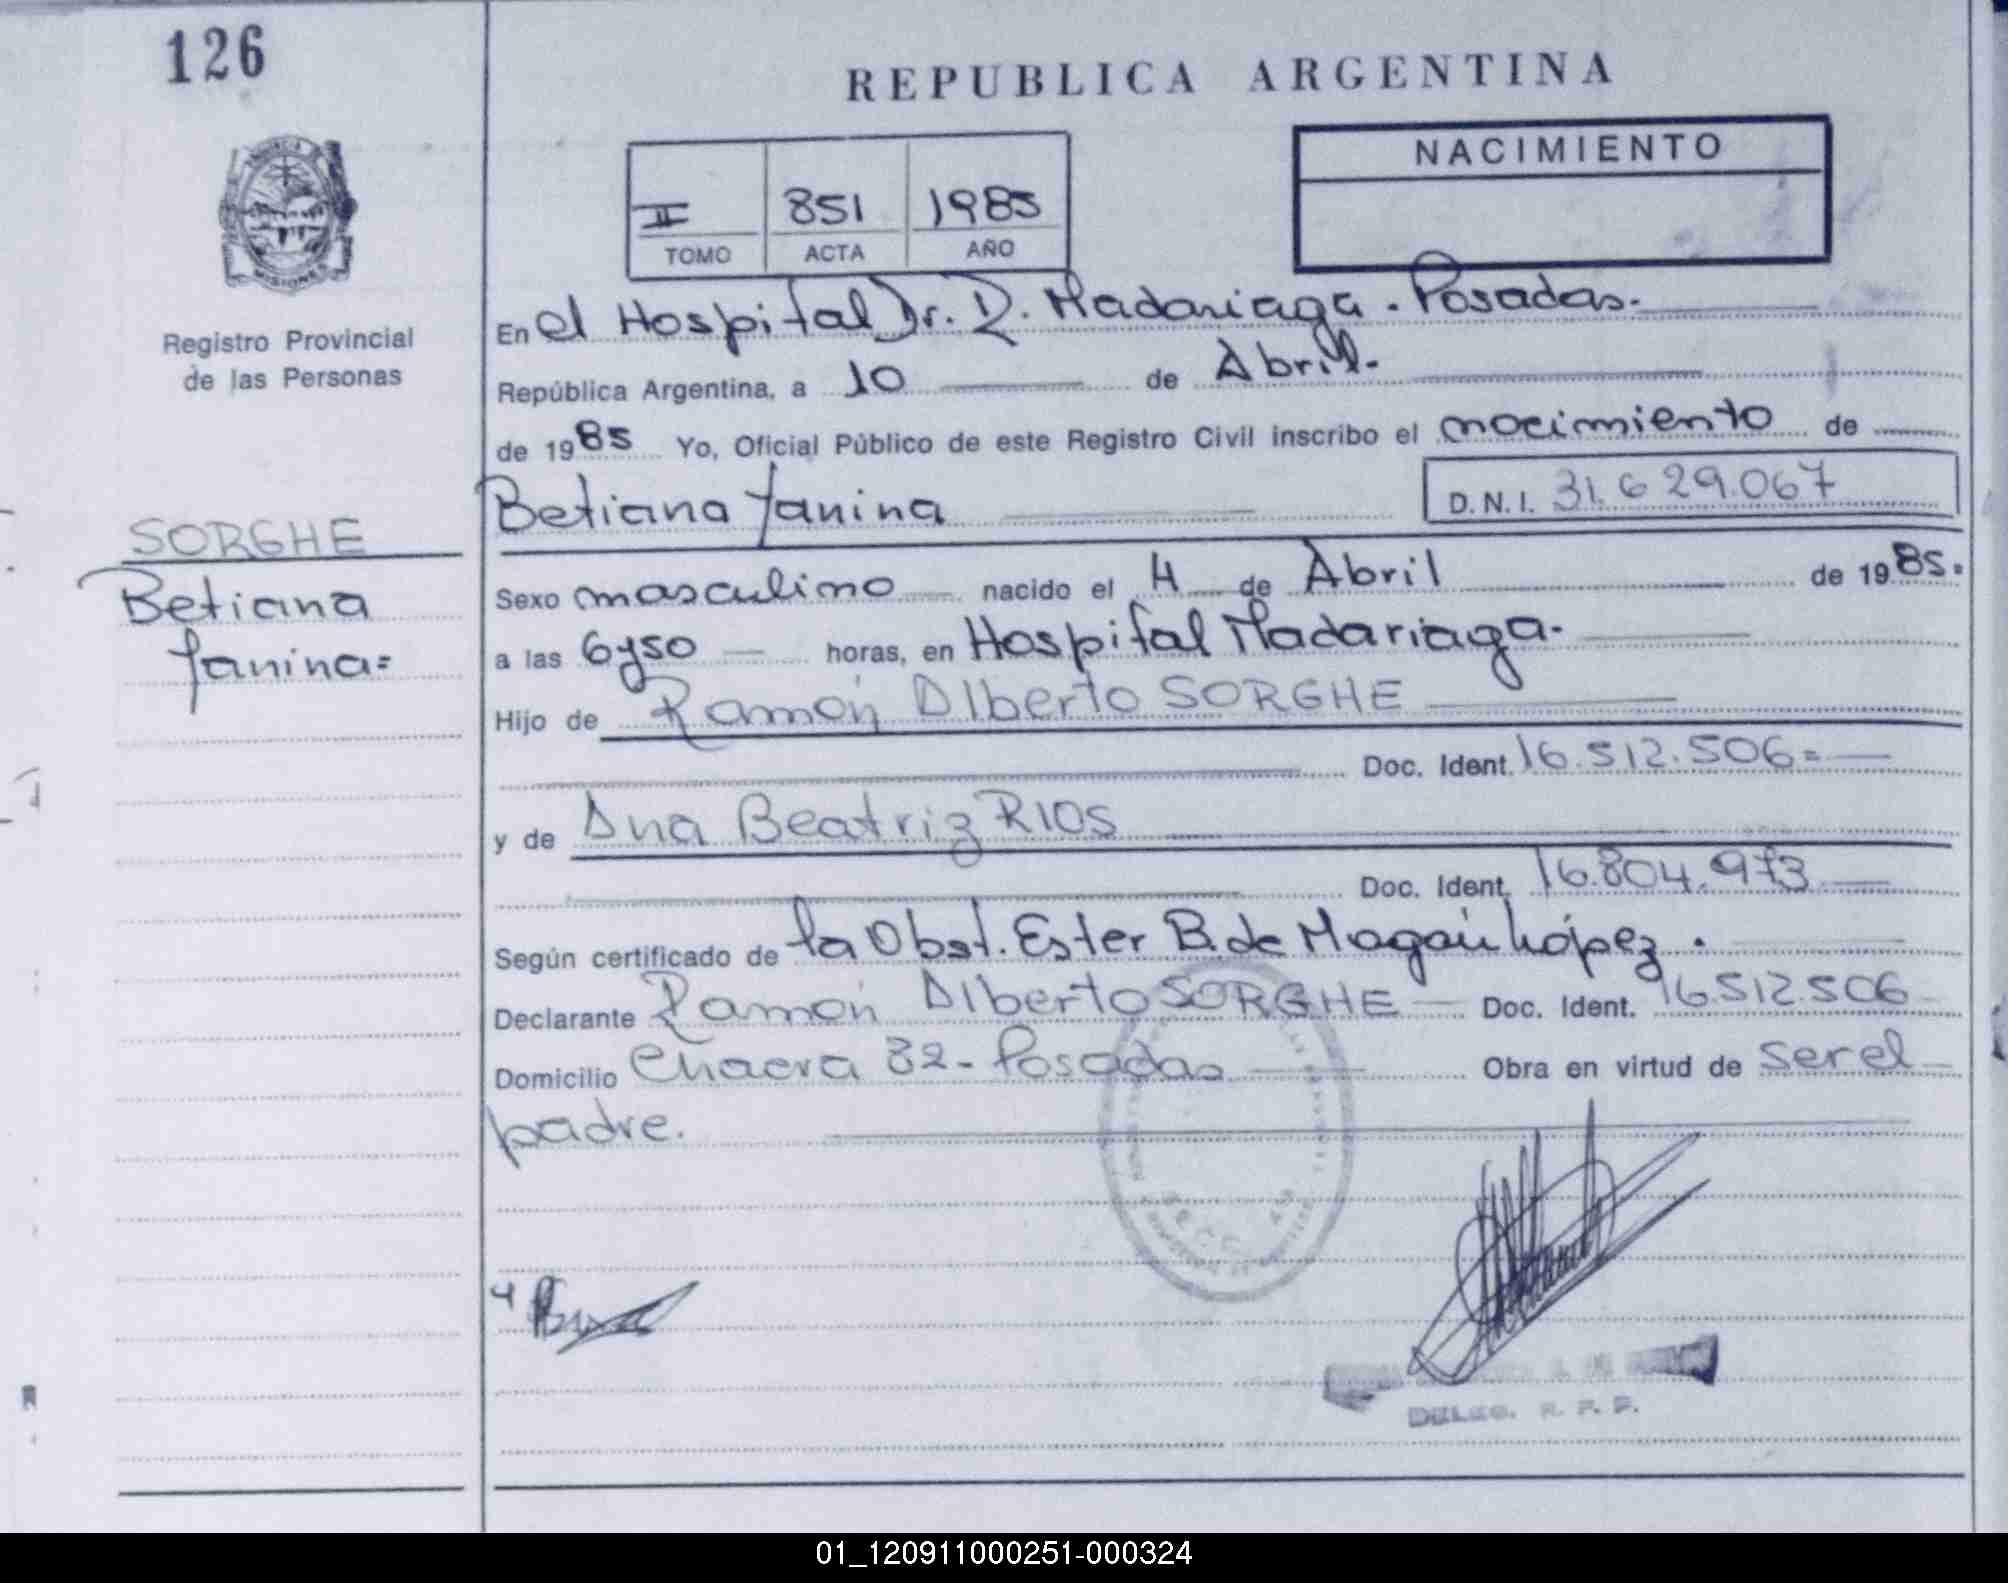 126
REPUBLICA ARGENTINA
NACIMIENTO
II 851 1985
TOMO ACTA AÑO
MISIONES
Registro Provincial
de las Personas
En el Hospital Dr. R. Madariaga. Posadas.
República Argentina, a 10 de Abril.
de 1985 Yo, Oficial Público de este Registro Civil inscribo el nacimiento de
Betiana Yanina D.N.I. 31.629.067
SORGHE
Betiana
Yanina=
Sexo masculino nacido el 4 de Abril de 1985.
a las 6y50 horas, en Hospital Madariaga.
Hijo de Ramón Alberto SORGHE
Doc. Ident. 16.512.506=
y de Ana Beatriz RIOS
Doc. Ident. 16.804.973
Según certificado de la Obst. Ester B. de López.
Declarante Ramón Alberto SORGHE Doc. Ident. 16.512.506
Domicilio Chacra 32- Posadas Obra en virtud de ser el
padre.
DELEG. R. P. P.
01_120911000251-000324